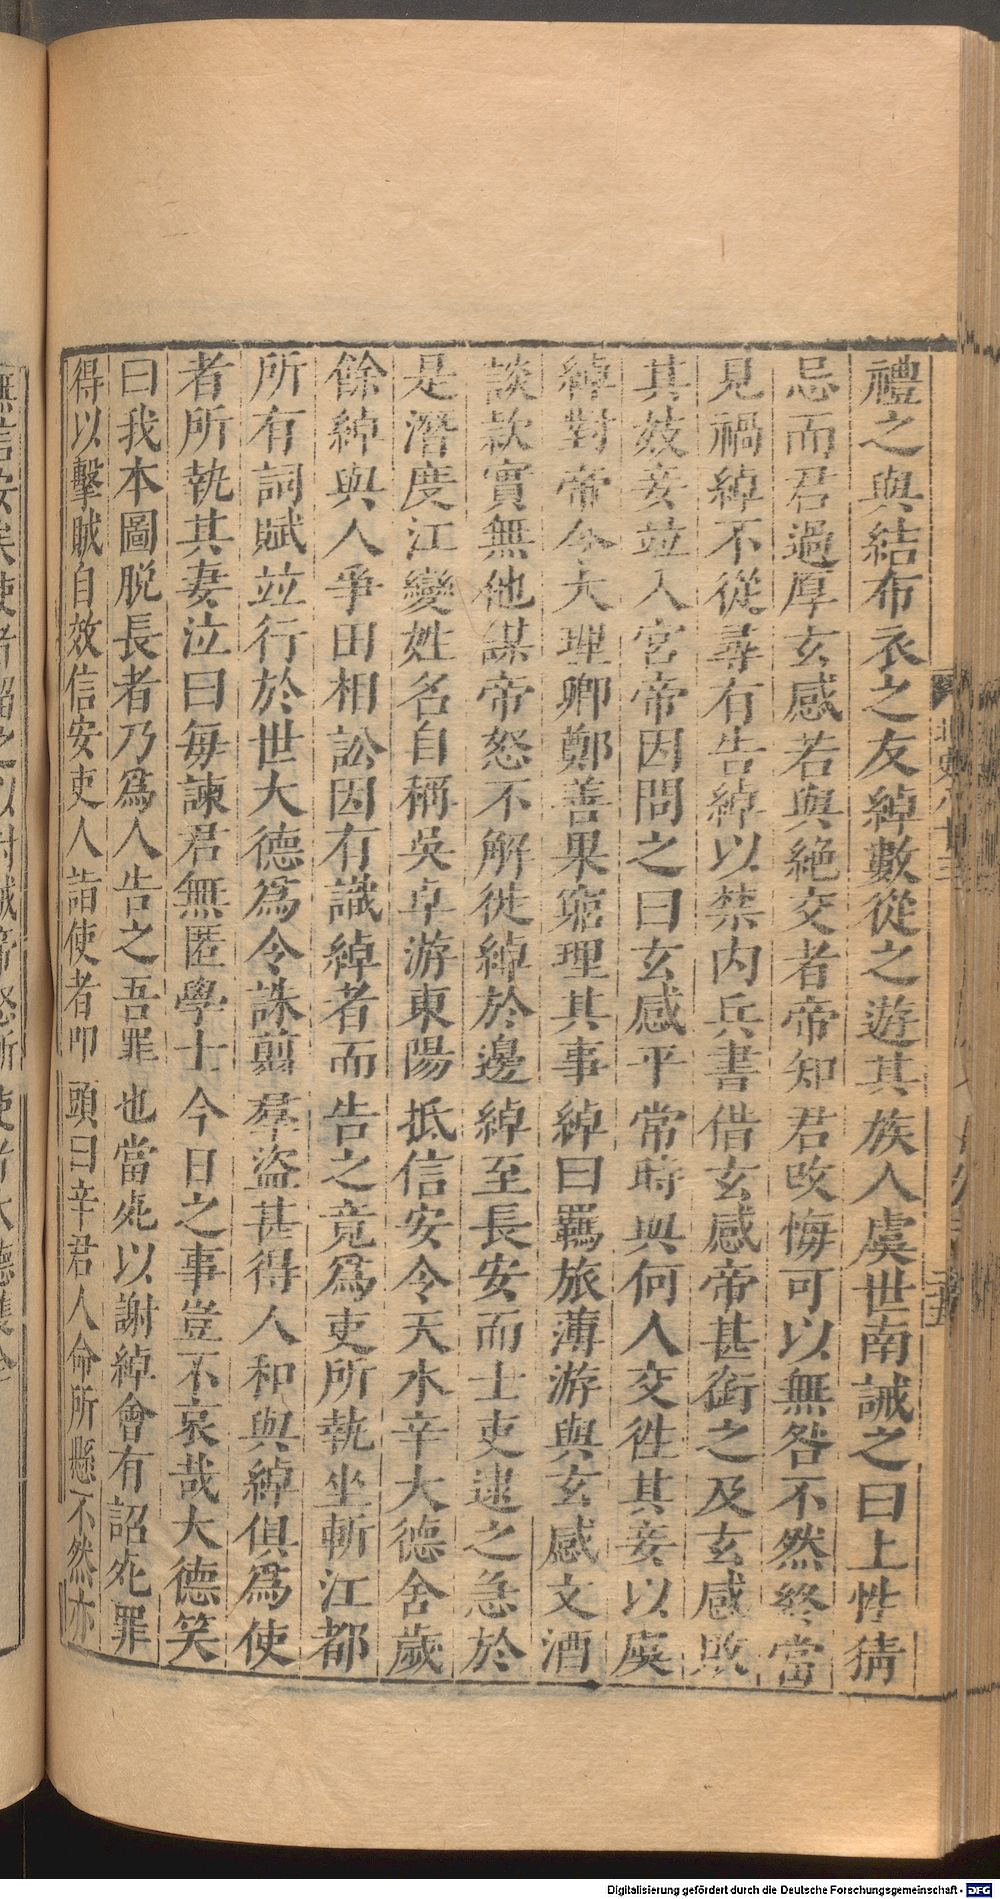 禮之與結布衣之友綽數從之遊其族人虞世南誡之曰上性猜
忌而君過厚玄感若與絕交者帝知君改悔可以無咎不然終當
見禍綽不從尋有告綽以禁內兵書借玄感帝甚銜之及玄感敗
其妓妾並入宮帝因問之曰玄感平常時與何人交往其妾以虞
綽對帝令大理卿鄭善果窮理其事綽曰羈旅薄游與玄感文酒
談款實無他謀帝怒不解徙綽於邊綽至長安而士吏逮之急於
是潛度江變姓名自稱吳卓游東陽抵信安令天水辛大德舍歲
餘綽與人爭田相訟因有識綽者而告之竟為吏所執坐斬江都
所有詞賦並行於世大德為令誅翦羣盜甚得人和與綽俱為使
者所執其妻泣曰每諫君無匿學士今日之事豈不哀哉大德笑
曰我本圖脫長者乃為人告之吾罪也當死以謝綽會有詔死罪
得以擊賊自效信安吏人詣使者叩頭曰辛君人命所懸不然亦
Digitalisierung gefördert durch die Deutsche Forschungsgemeinschaft - DFG